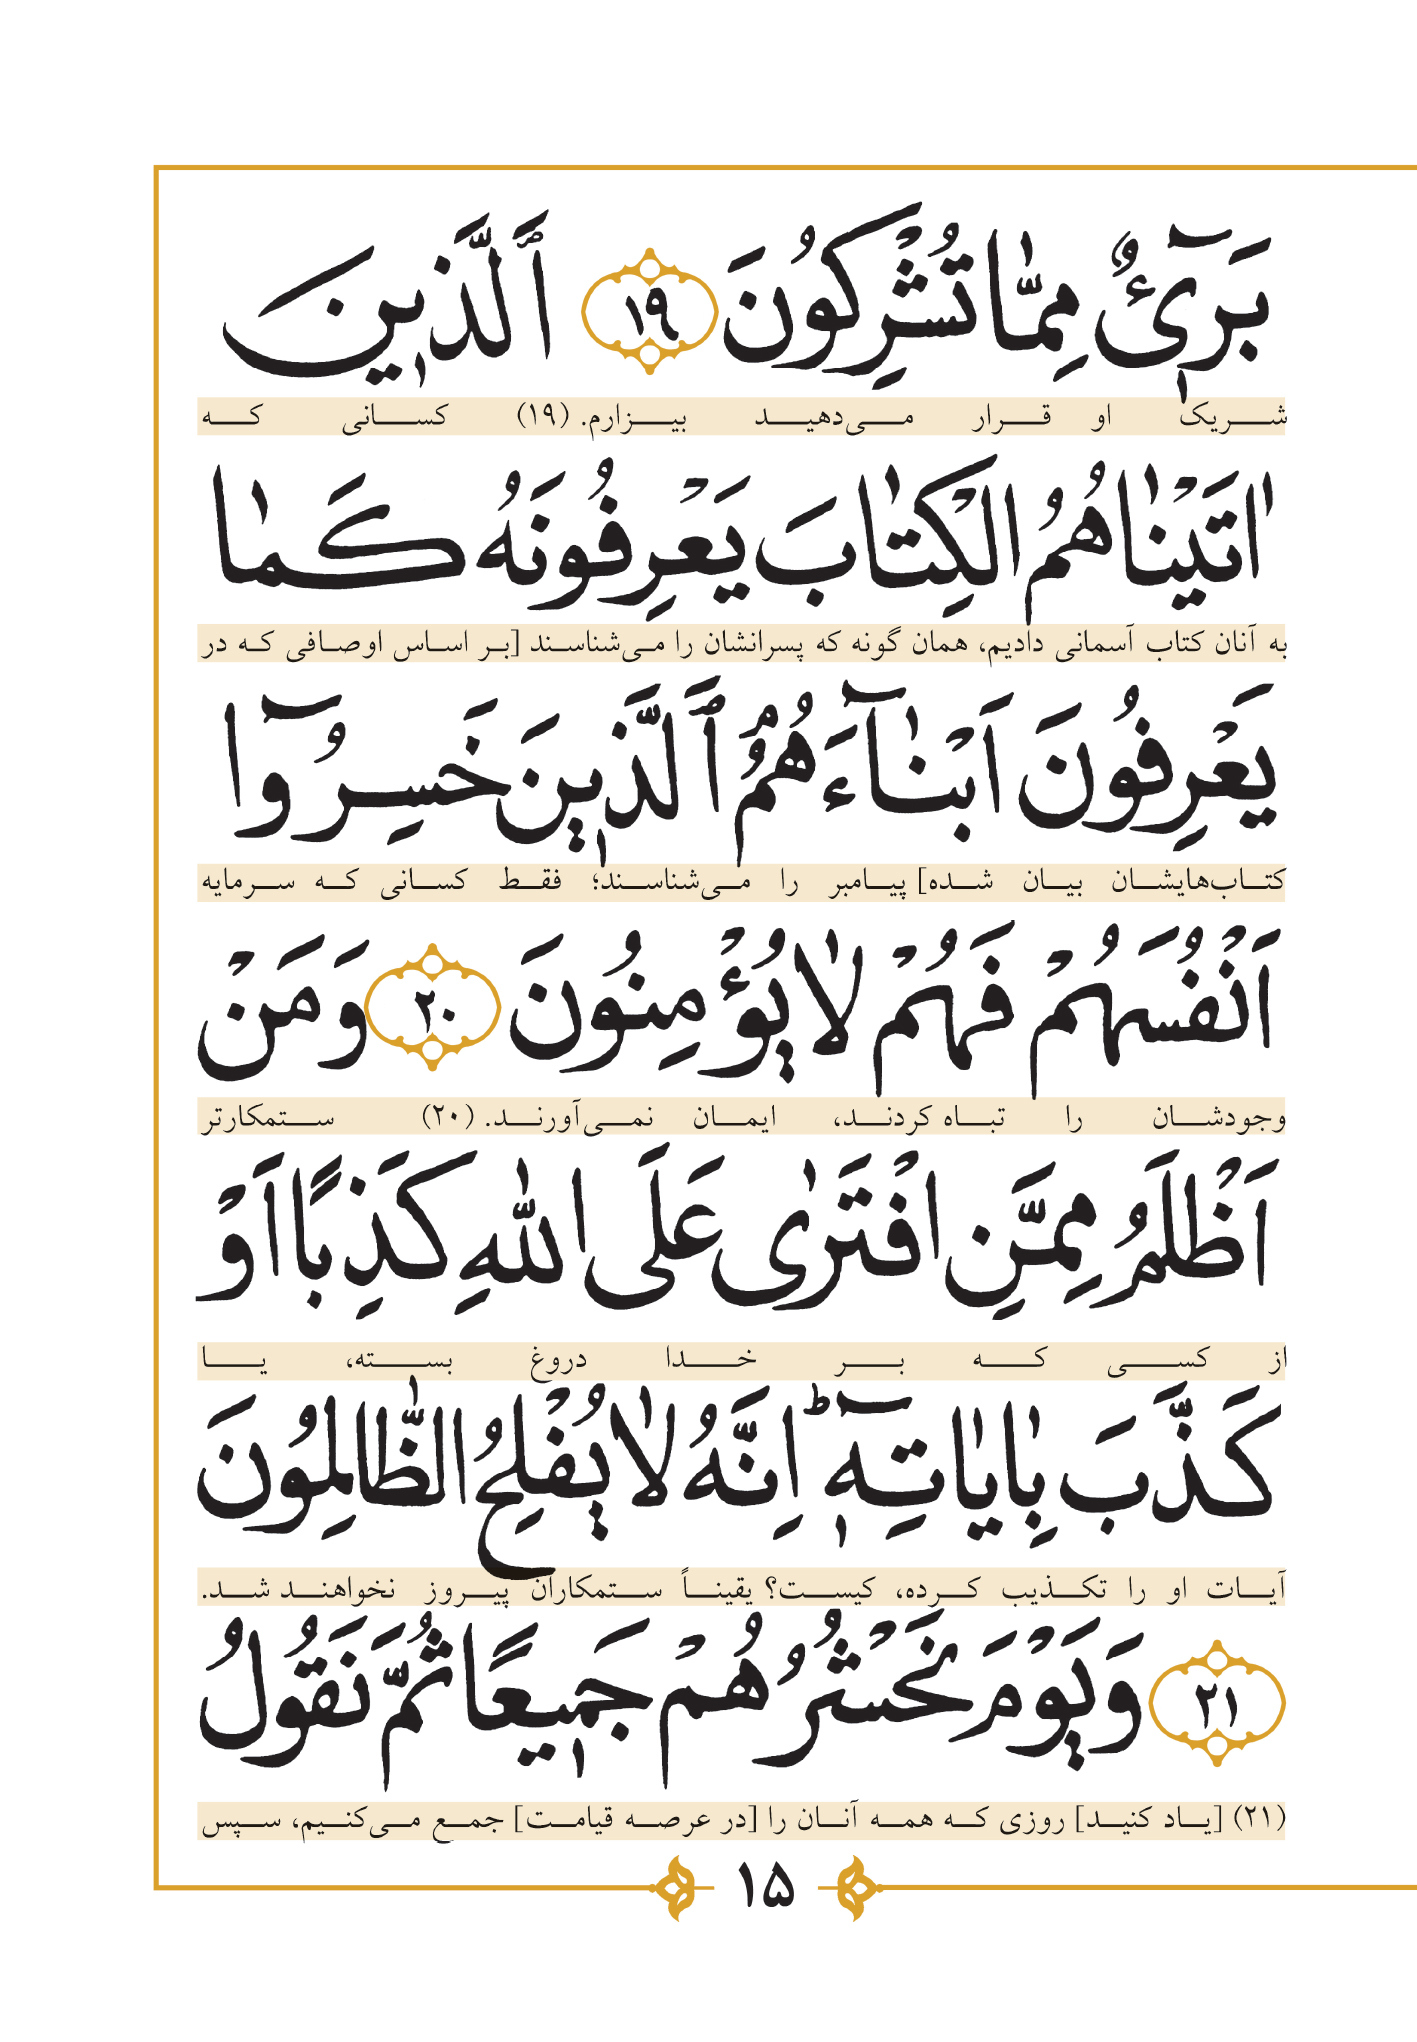 بَرٖٓئٌ مِمّٰا تُشْرِكُونَ ﴿١٩﴾ ٱلَّذٖينَ
شریک او قرار می‌دهید بیزارم. (۱۹) کسانی که
اٰتَيْنٰاهُمُ الْكِتٰابَ يَعْرِفُونَهُ كَمٰا
به آنان کتاب آسمانی دادیم، همان گونه که پسرانشان را می‌شناسند [بر اساس اوصافی که در
يَعْرِفُونَ اَبْنٰآءَهُمُ ٱلَّذٖينَ خَسِرُوٓا
کتاب‌هایشان بیان شده] پیامبر را می‌شناسند؛ فقط کسانی که سرمایه
اَنْفُسَهُمْ فَهُمْ لٰا يُؤْمِنُونَ ﴿٢٠﴾ وَمَنْ
وجودشان را تباه کردند، ایمان نمی‌آورند. (۲۰) ستمکارتر
اَظْلَمُ مِمَّنِ افْتَرٰى عَلَى اللّٰهِ كَذِبًا اَوْ
از کسی که بر خدا دروغ بسته، یا
كَذَّبَ بِاٰيٰاتِهٖٓ ؕ اِنَّهُ لٰا يُفْلِحُ الظّٰالِمُونَ
آیات او را تکذیب کرده، کیست؟ یقیناً ستمکاران پیروز نخواهند شد.
﴿٢١﴾ وَيَوْمَ نَحْشُرُهُمْ جَمٖيعًا ثُمَّ نَقُولُ
(۲۱) [یاد کنید] روزی که همه آنان را [در عرصه قیامت] جمع می‌کنیم، سپس
۱۵